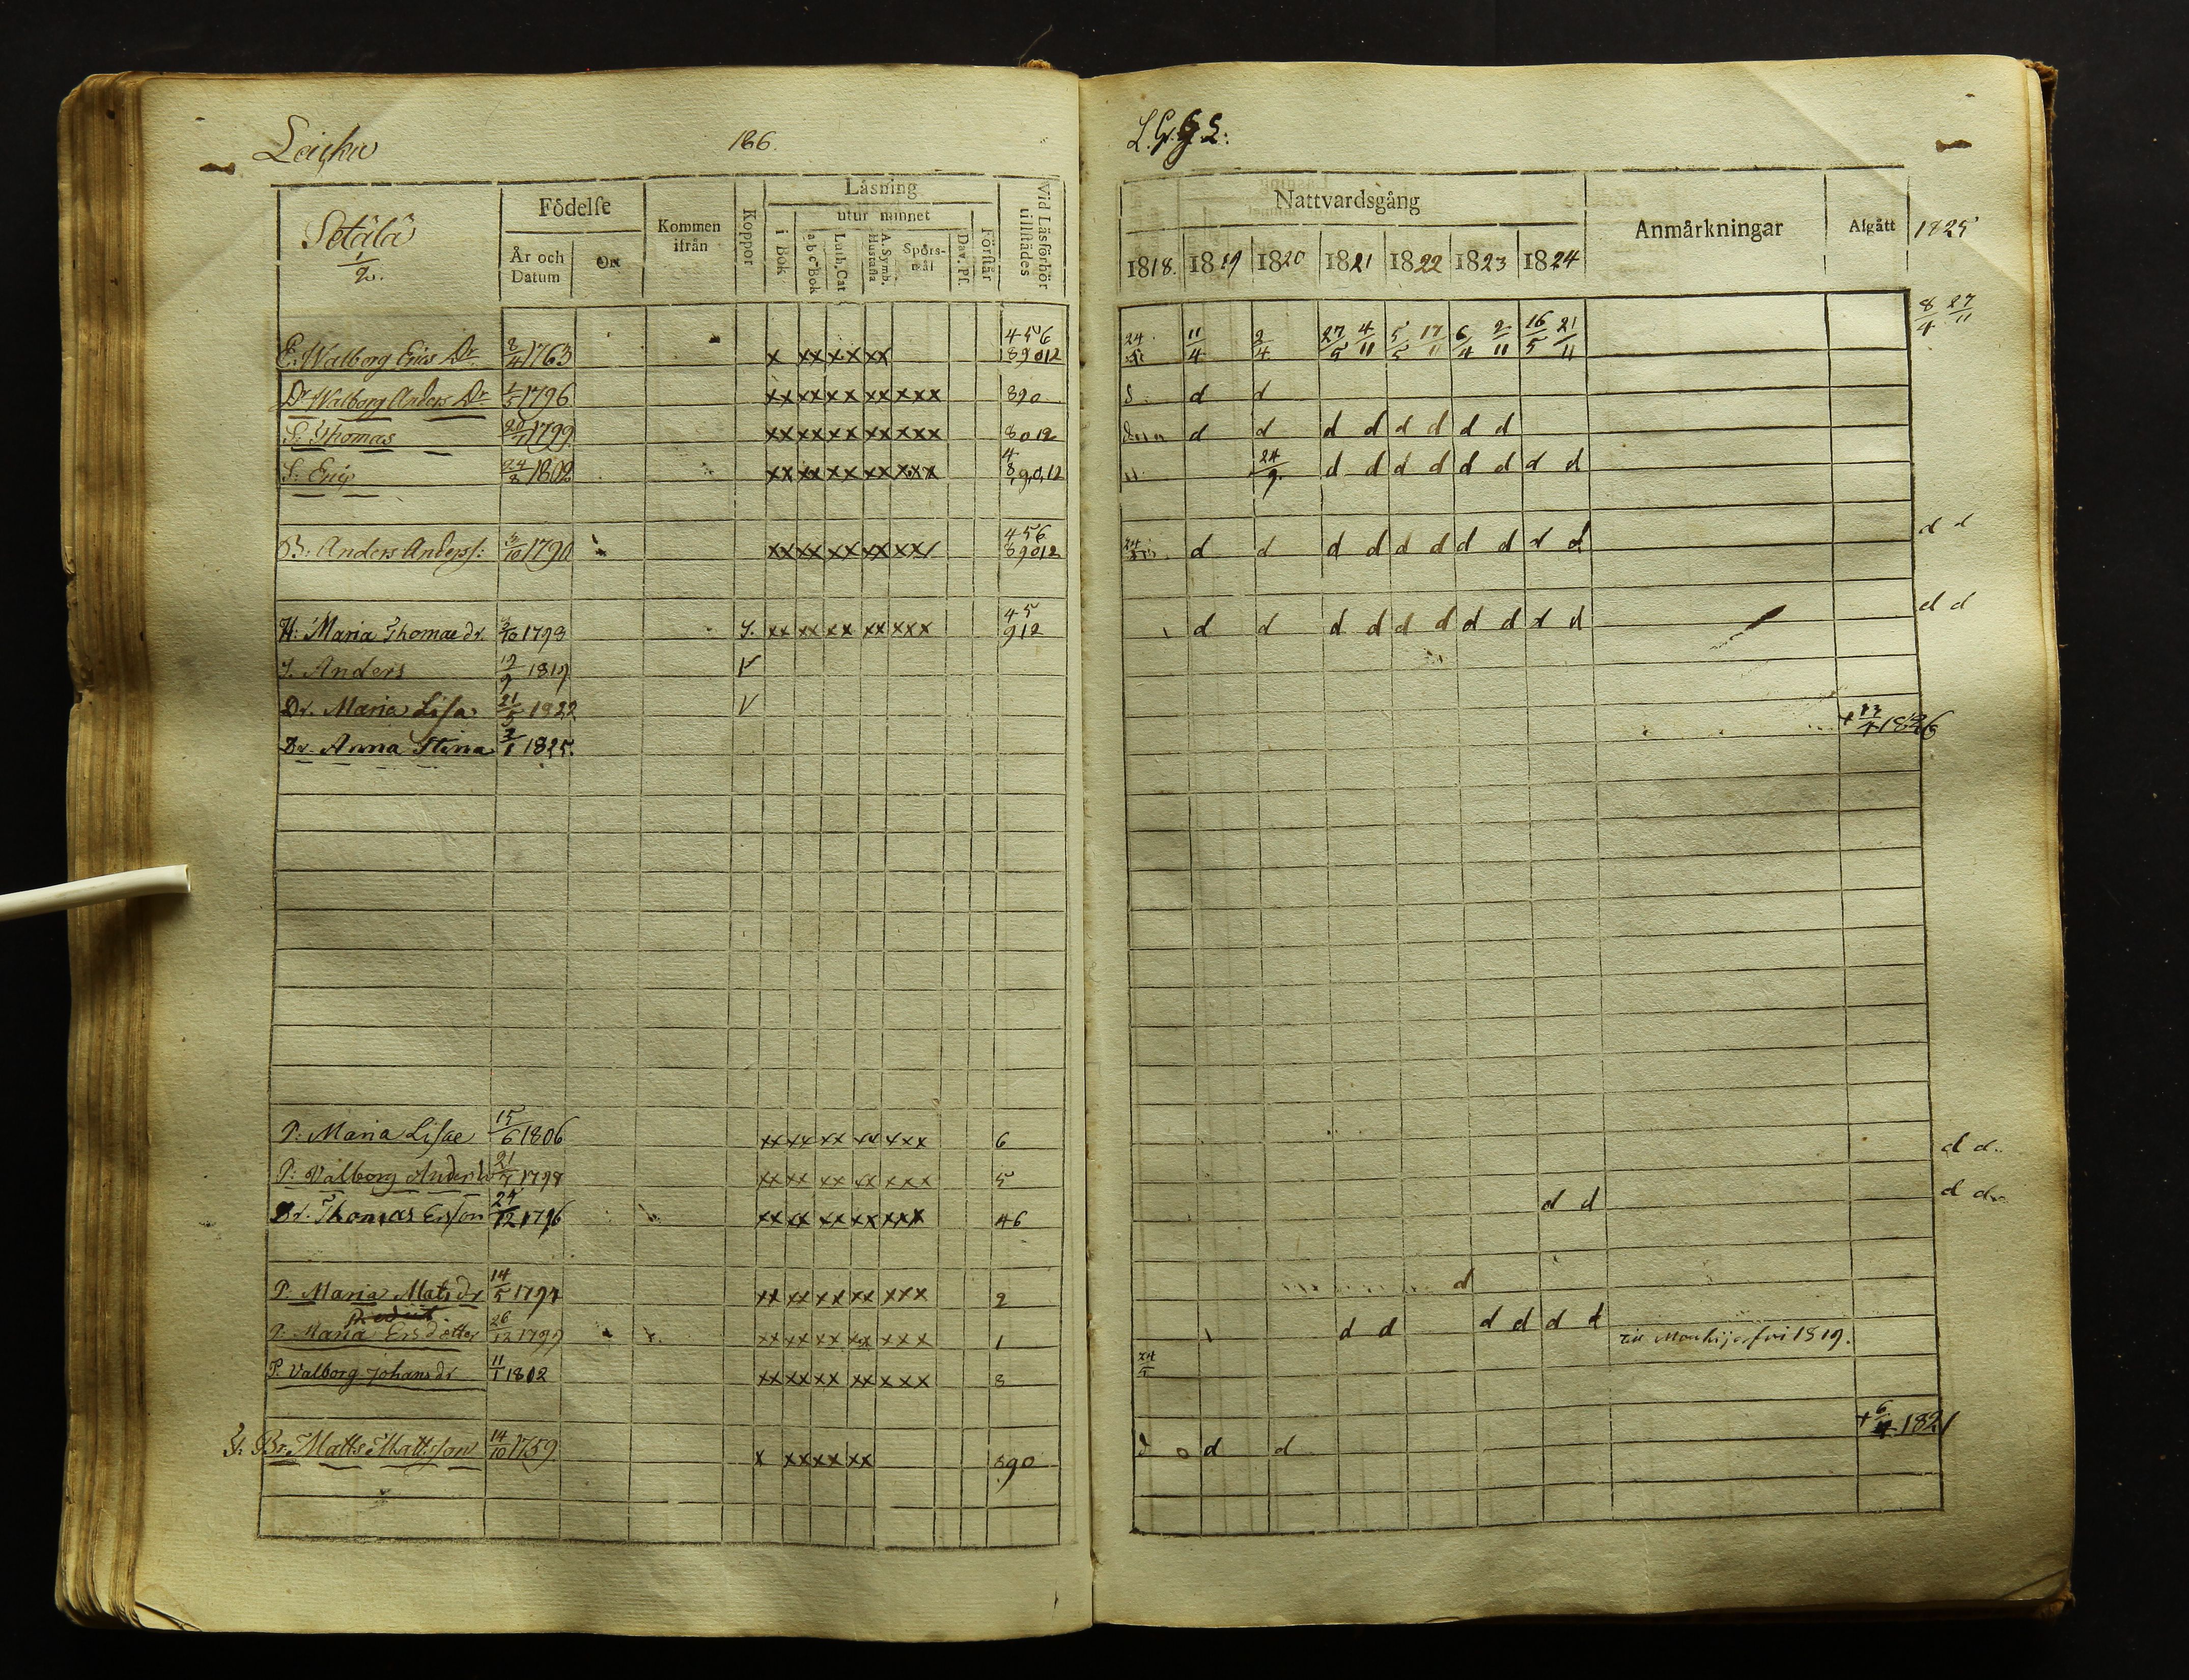 186.
Setälä
1/2.
Födelse
År och Datum
Ort
Kommen ifrån
Koppor
Läsning
i Bok
utur minnet
a b c-Bok
Luth. Cat
A. Symb. Hustafla
Spörs-mål
Dav. Ps.
Förstår
Vid Läsförhör tillstädes
E. Walborg Erics Dr 8/4 1763 x xx xx xx 4 5 6 8 9 0 12
Dr Walborg Anders Dr 1/5 1796 xx xx xx xx xxx 8 9 0
S. Thomas 20/7 1799 xx xx xx xx xxx 8 0 12
S: Eric 24/8 1802 xx xx xx xx xxx 4 8, 9, 0, 12
B: Anders Anderss: 3/10 1790 xx xx xx xx xx 4 5 6 8 9 0 12
H: Maria Thomae dr. 2/10 1798 xx xx xx xx xxx 4 5 9 12
S. Anders 19/9 1819 V
Dr. Maria Lisa 21/5 1822 V
Dr. Anna Stina 3/1 1825.
P: Maria Lisae 15/6 1806 xx xx xx xx xxx 6
P: Valborg Anders 21/7 1798 xx xx xx xx xxx 5
Dr. Thomas Ersson 24/12 1796 xx xx xx xx xxx 4 6
P. Maria Mats dr 14/5 1797 xx xx xx xx xxx 2
P. Maria Ersdotter 26/12 1799 xx xx xx xx xxx 1
P. Valborg Johans dr 11/1 1802 xx xx xx xx xxx 8
Br. Matts Mattsson 14/10 1759. x xx xx xx 8 9 0
Nattvardsgång
Anmärkningar
Afgått
1825
1818. 1819 1820 1821 1822 1823 1824
11/4 2/4 27/5 4/11 5/5 17/11 6/4 2/11 16/5 21/11 8/4 27/11
d d
d d d d d d d d
24/9. d d d d d d d d
d d d d d d d d d d d d
d d d d d d d d d d d d
1826
d d..
d d d d
d
d d d d d d 1819.
24/5
d d + 6/4 1821